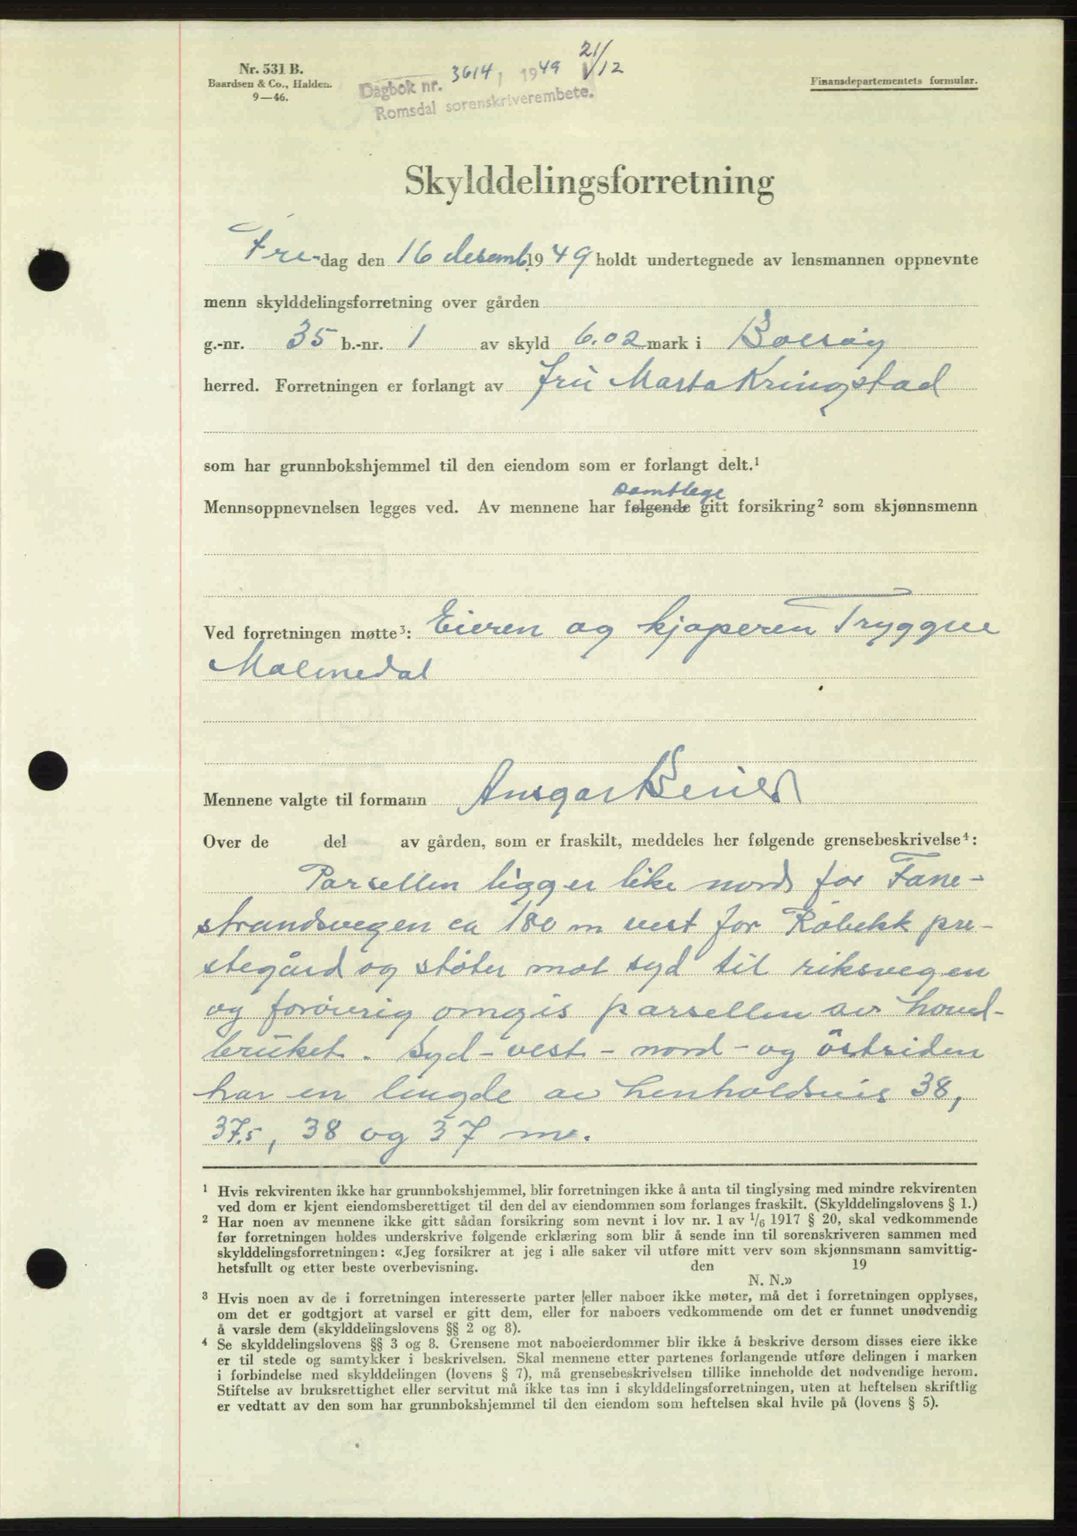 Nr. 531 B.
Baardsen & Co., Halden.
9—46.
Dagbok nr. 3614, 1949 21/12
Romsdal sorenskriverembete.
Finansdepartementets formular.
Skylddelingsforretning
Fre-dag den 16 desemb. 1949 holdt undertegnede av lensmannen oppnevnte
menn skylddelingsforretning over gården
g.-nr. 35 b.-nr. 1 av skyld 6.02 mark i Bolsøy
herred. Forretningen er forlangt av fru Marta Kringstad
som har grunnbokshjemmel til den eiendom som er forlangt delt.¹
samtlege
Mennsoppnevnelsen legges ved. Av mennene har følgende gitt forsikring² som skjønnsmenn
Ved forretningen møtte³: Eieren og kjøperen Tryggve
Malmedal
Mennene valgte til formann Ansgar
Over de del av gården, som er fraskilt, meddeles her følgende grensebeskrivelse⁴:
Parsellen ligger like nord for Fane-
strandsvegen ca 180 m vest for Røbekk pre-
stegård og støter mot syd til riksvegen
og forøvrig omgis parsellen av hoved-
bruket. Syd- vest- nord- og östsiden
har en lengde av henholdsvis 38,
37.5, 38 og 37 m.
¹ Hvis rekvirenten ikke har grunnbokshjemmel, blir forretningen ikke å anta til tinglysing med mindre rekvirenten
ved dom er kjent eiendomsberettiget til den del av eiendommen som forlanges fraskilt. (Skylddelingslovens § 1.)
² Har noen av mennene ikke gitt sådan forsikring som nevnt i lov nr. 1 av 1/6 1917 § 20, skal vedkommende
før forretningen holdes underskrive følgende erklæring som blir å sende inn til sorenskriveren sammen med
skylddelingsforretningen: «Jeg forsikrer at jeg i alle saker vil utføre mitt verv som skjønnsmann samvittig-
hetsfullt og etter beste overbevisning. den 19
N. N.»
³ Hvis noen av de i forretningen interesserte parter eller naboer ikke møter, må det i forretningen opplyses,
om det er godtgjort at varsel er gitt dem, eller for naboers vedkommende om det er funnet unødvendig
å varsle dem (skylddelingslovens §§ 2 og 8).
⁴ Se skylddelingslovens §§ 3 og 8. Grensene mot naboeierdommer blir ikke å beskrive dersom disses eiere ikke
er til stede og samtykker i beskrivelsen. Skal mennene etter partenes forlangende utføre delingen i marken
i forbindelse med skylddelingen (lovens § 7), må grensebeskrivelsen tillike inneholde det nødvendige herom.
Stiftelse av bruksrettighet eller servitut må ikke tas inn i skylddelingsforretningen, uten at heftelsen skriftlig
er vedtatt av den som har grunnbokshjemmel til den eiendom som heftelsen skal hvile på (lovens § 5).